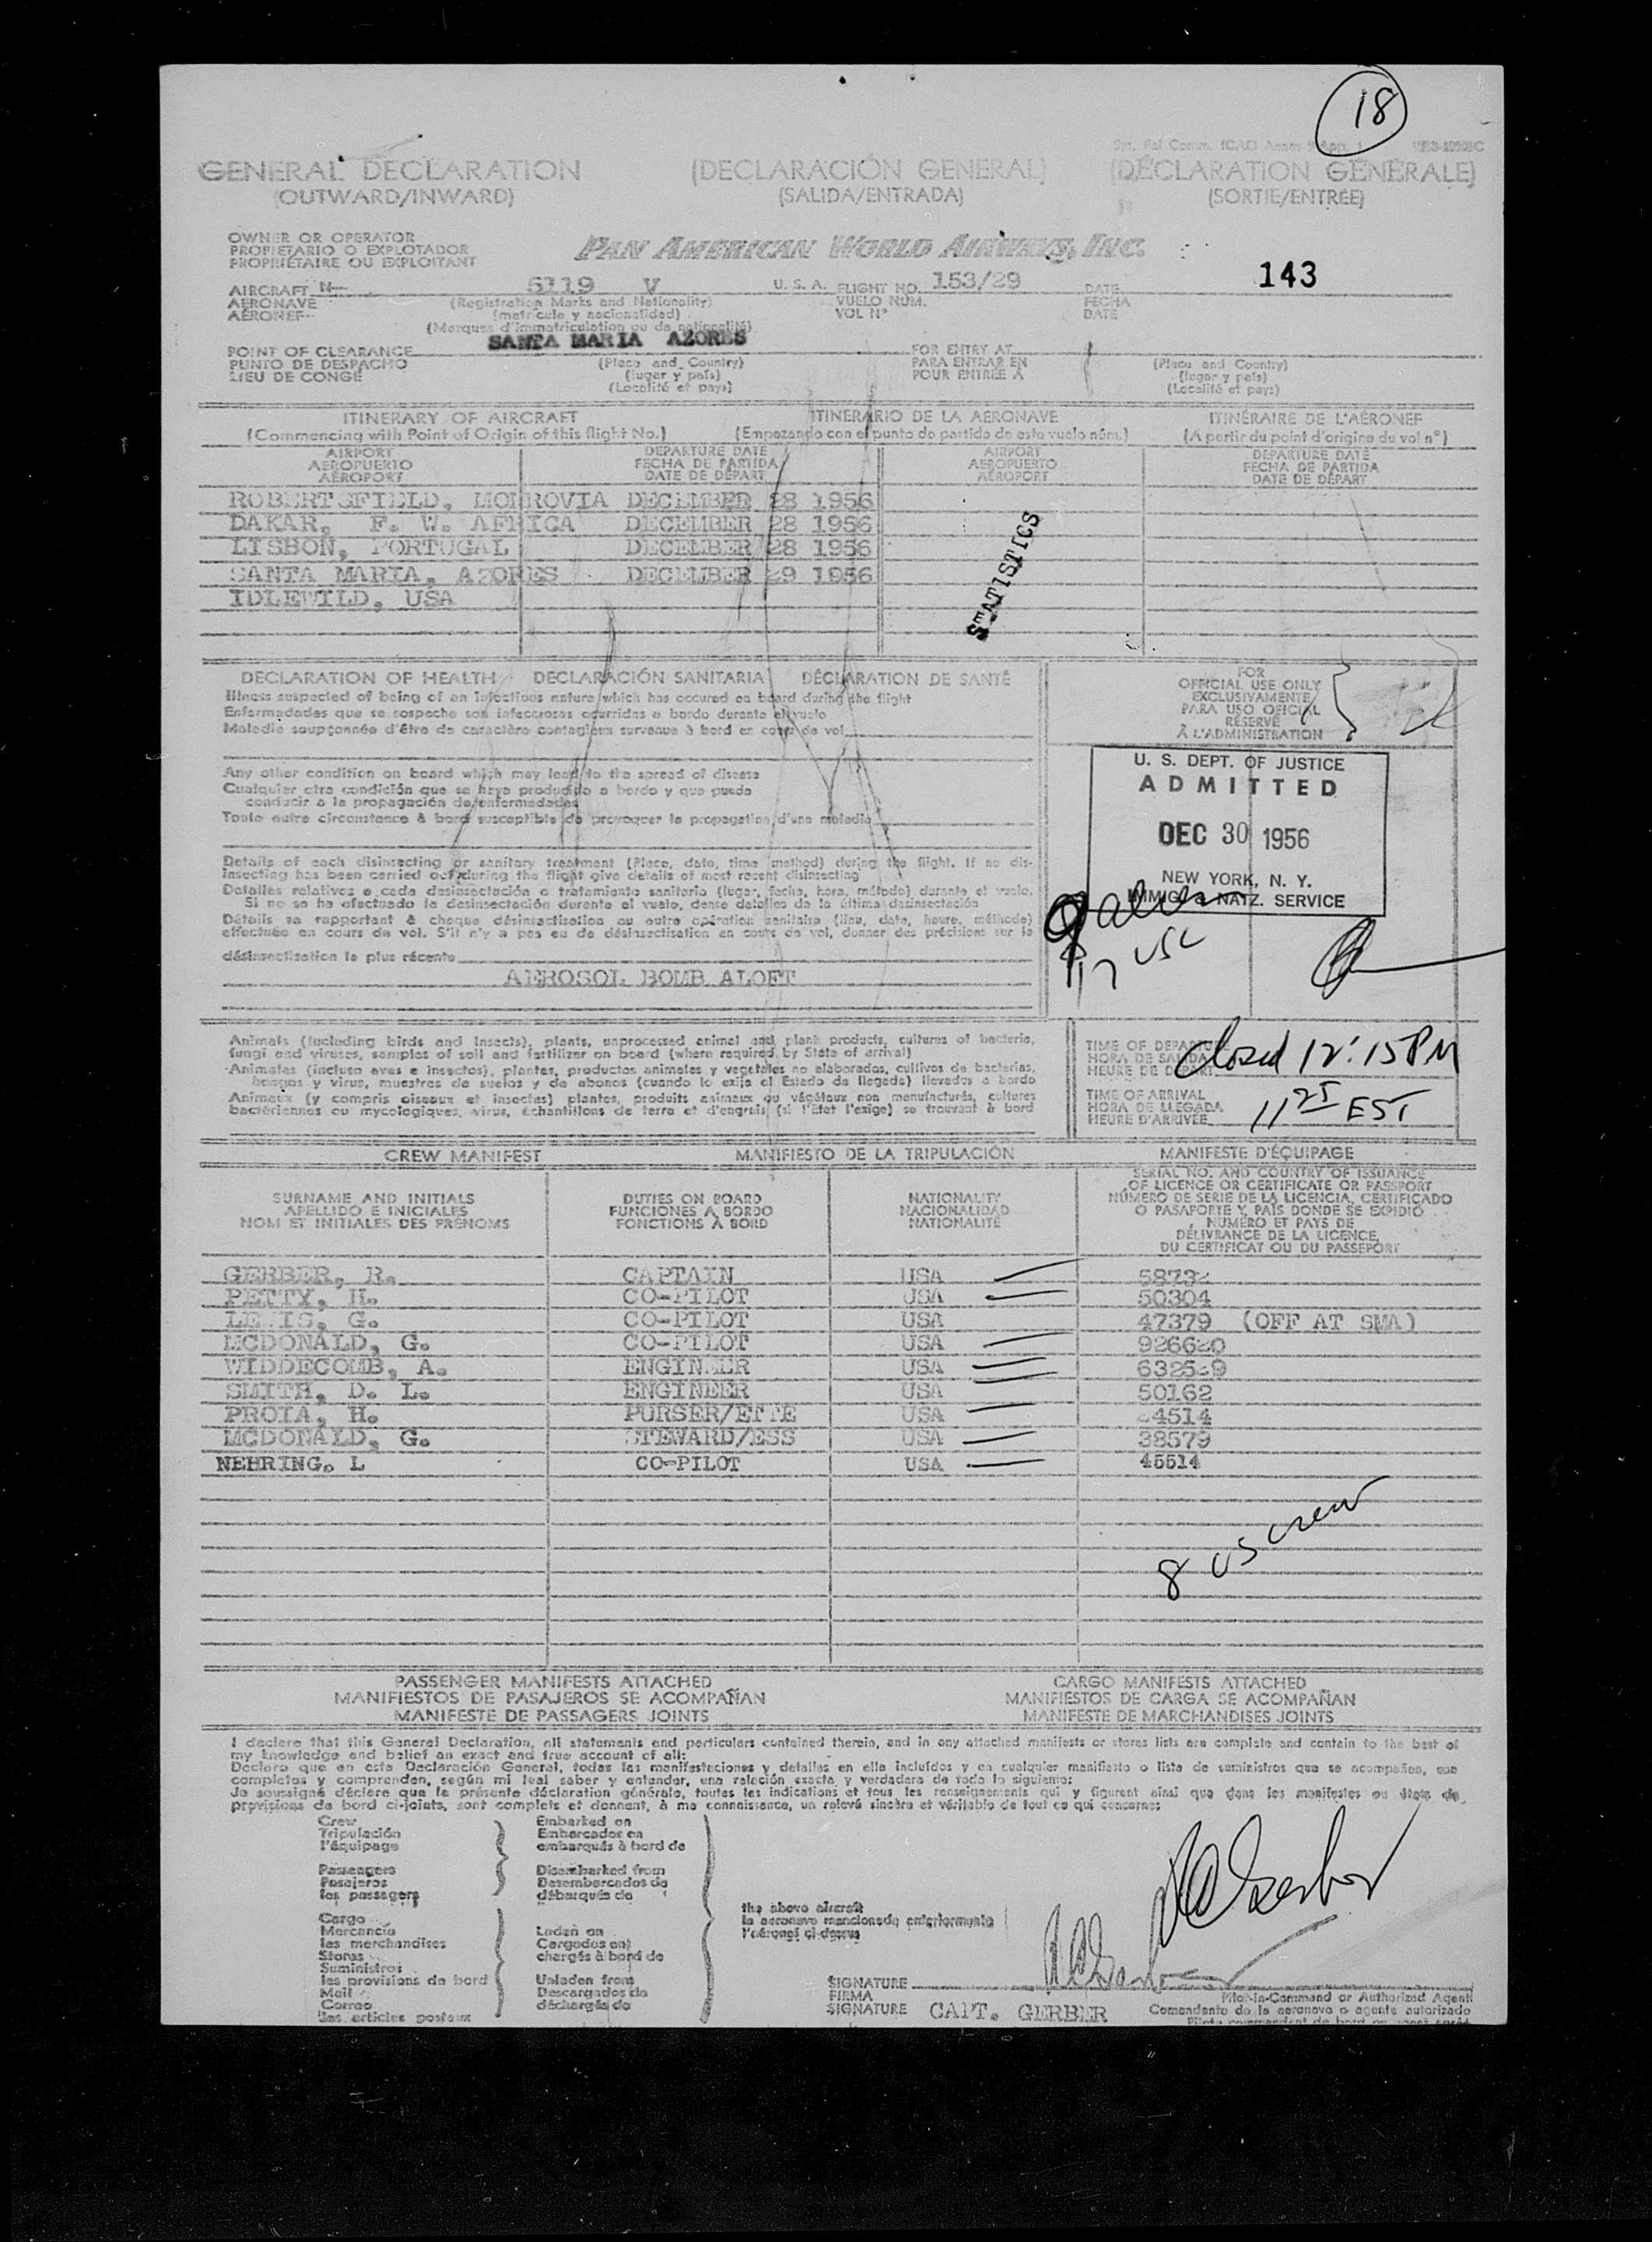 18
GENERAL DECLARATION (DECLARACIÓN GENERAL) (DÉCLARATION GÉNÉRALE)
(OUTWARD/INWARD) (SALIDA/ENTRADA) (SORTIE/ENTRÉE)
OWNER OR OPERATOR
PROPIETARIO O EXPLOTADOR
PROPRIÉTAIRE OU EXPLOITANT
PAN AMERICAN WORLD AIRWAYS, INC.
143
AIRCRAFT N 5119 V U. S. A. FLIGHT NO. 153/29 DATE
AERONAVE (Registration Marks and Nationality) VUELO NÚM. FECHA
AÉRONEF (matrícula y nacionalidad) VOL N° DATE
(Marques d'immatriculation ou de nationalité)
SANTA MARIA AZORES
POINT OF CLEARANCE FOR ENTRY AT
PUNTO DE DESPACHO (Place and Country) PARA ENTRAR EN (Place and Country)
LIEU DE CONGÉ (lugar y país) POUR ENTRÉE À (lugar y país)
(Localité et pays) (Localité et pays)
ITINERARY OF AIRCRAFT ITINERARIO DE LA AERONAVE ITINÉRAIRE DE L'AÉRONEF
(Commencing with Point of Origin of this flight No.) (Empezando con el punto de partida de este vuelo núm.) (A partir du point d'origine du vol n°)
AIRPORT DEPARTURE DATE AIRPORT DEPARTURE DATE
AEROPUERTO FECHA DE PARTIDA AEROPUERTO FECHA DE PARTIDA
AÉROPORT DATE DE DÉPART AÉROPORT DATE DE DÉPART
ROBERTSFIELD, MONROVIA DECEMBER 28 1956
DAKAR, F. W. AFRICA DECEMBER 28 1956
LISBON, PORTUGAL DECEMBER 28 1956
SANTA MARIA, AZORES DECEMBER 29 1956
IDLEWILD, USA
STATISTICS
DECLARATION OF HEALTH DECLARACIÓN SANITARIA DÉCLARATION DE SANTÉ
Illness suspected of being of an infectious nature which has occured on board during the flight
Enfermedades que se sospeche son infecciosas ocurridas a bordo durante el vuelo
Maladie soupçonnée d'être de caractère contagieux survenue à bord en cours de vol
Any other condition on board which may lead to the spread of disease
Cualquier otra condición que se haya producido a bordo y que pueda
conducir a la propagación de enfermedades
Toute autre circonstance à bord susceptible de provoquer la propagation d'une maladie
Details of each disinsecting or sanitary treatment (Place, date, time method) during the flight. If no dis-
insecting has been carried out during the flight give details of most recent disinsecting
Detalles relativos a cada desinsectación o tratamiento sanitario (lugar, fecha, hora, método) durante el vuelo.
Si no se ha efectuado la desinsectación durante el vuelo, dense detalles de la última desinsectación
Détails se rapportant à chaque désinsectisation ou autre opération sanitaire (lieu, date, heure, méthode)
effectuée en cours de vol. S'il n'y a pas eu de désinsectisation en cours de vol, donner des précisions sur la
désinsectisation la plus récente
AEROSOL BOMB ALOFT
FOR
OFFICIAL USE ONLY
EXCLUSIVAMENTE
PARA USO OFICIAL
RÉSERVÉ
À L'ADMINISTRATION
U. S. DEPT. OF JUSTICE
ADMITTED
DEC 30 1956
NEW YORK, N. Y.
IMMIG & NATZ. SERVICE
17 USC
Animals (including birds and insects), plants, unprocessed animal and plant products, cultures of bacteria,
fungi and viruses, samples of soil and fertilizer on board (where required by State of arrival)
Animales (incluso aves e insectos), plantas, productos animales y vegetales no elaborados, cultivos de bacterias,
hongos y virus, muestras de suelos y de abonos (cuando lo exija el Estado de llegada) llevados a bordo
Animaux (y compris oiseaux et insectes) plantes, produits animaux ou végétaux non manufacturés, cultures
bactériennes ou mycologiques, virus, échantillons de terre et d'engrais (si l'État l'exige) se trouvant à bord
TIME OF DEPARTURE
HORA DE SALIDA
HEURE DE DÉPART
closed 12:15 PM
TIME OF ARRIVAL
HORA DE LLEGADA
HEURE D'ARRIVÉE
11 25 EST
CREW MANIFEST MANIFIESTO DE LA TRIPULACIÓN MANIFESTE D'ÉQUIPAGE
SURNAME AND INITIALS
APELLIDO E INICIALES
NOM ET INITIALES DES PRÉNOMS
DUTIES ON BOARD
FUNCIONES A BORDO
FONCTIONS À BORD
NATIONALITY
NACIONALIDAD
NATIONALITÉ
SERIAL NO. AND COUNTRY OF ISSUANCE
OF LICENCE OR CERTIFICATE OR PASSPORT
NÚMERO DE SERIE DE LA LICENCIA, CERTIFICADO
O PASAPORTE Y PAÍS DONDE SE EXPIDIÓ
NUMÉRO ET PAYS DE
DÉLIVRANCE DE LA LICENCE,
DU CERTIFICAT OU DU PASSEPORT
GERBER, R. CAPTAIN USA
PETTY, H. CO-PILOT USA 50304
LEWIS, G. CO-PILOT USA 47379 (OFF AT SMA)
MCDONALD, G. CO-PILOT USA
WIDDECOMB, A. ENGINEER USA
SMITH, D. L. ENGINEER USA 50162
PROIA, H. PURSER/ETTE USA
MCDONALD, G. STEWARD/ESS USA 38579
NEHRING, L CO-PILOT USA 45514
8 US crew
PASSENGER MANIFESTS ATTACHED CARGO MANIFESTS ATTACHED
MANIFIESTOS DE PASAJEROS SE ACOMPAÑAN MANIFIESTOS DE CARGA SE ACOMPAÑAN
MANIFESTE DE PASSAGERS JOINTS MANIFESTE DE MARCHANDISES JOINTS
I declare that this General Declaration, all statements and particulars contained therein, and in any attached manifests or stores lists are complete and contain to the best of
my knowledge and belief an exact and true account of all:
Declaro que en esta Declaración General, todas las manifestaciones y detalles en ella incluídos y en cualquier manifiesto o lista de suministros que se acompañen, son
completos y comprenden, según mi leal saber y entender, una relación exacta y verdadera de todo lo siguiente:
Je soussigné déclare que la présente déclaration générale, toutes les indications et tous les renseignements qui y figurent ainsi que dans les manifestes ou états de
provisions de bord ci-joints, sont complets et donnent, à ma connaissance, un relevé sincère et véritable de tout ce qui concerne:
Crew Embarked on
Tripulación Embarcados en
l'équipage embarqués à bord de
Passengers Disembarked from
Pasajeros Desembarcados de
les passagers débarqués de
the above aircraft
la aeronave mencionada anteriormente
l'aéronef ci-dessus
Cargo
Mercancía Laden on
les merchandises Cargados en
Stores chargés à bord de
Suministros
les provisions de bord Unladen from
Mail Descargados de
Correo déchargés de
les articles postaux
SIGNATURE
FIRMA
SIGNATURE CAPT. GERBER
Pilot-in-Command or Authorized Agent
Comandante de la aeronave o agente autorizado